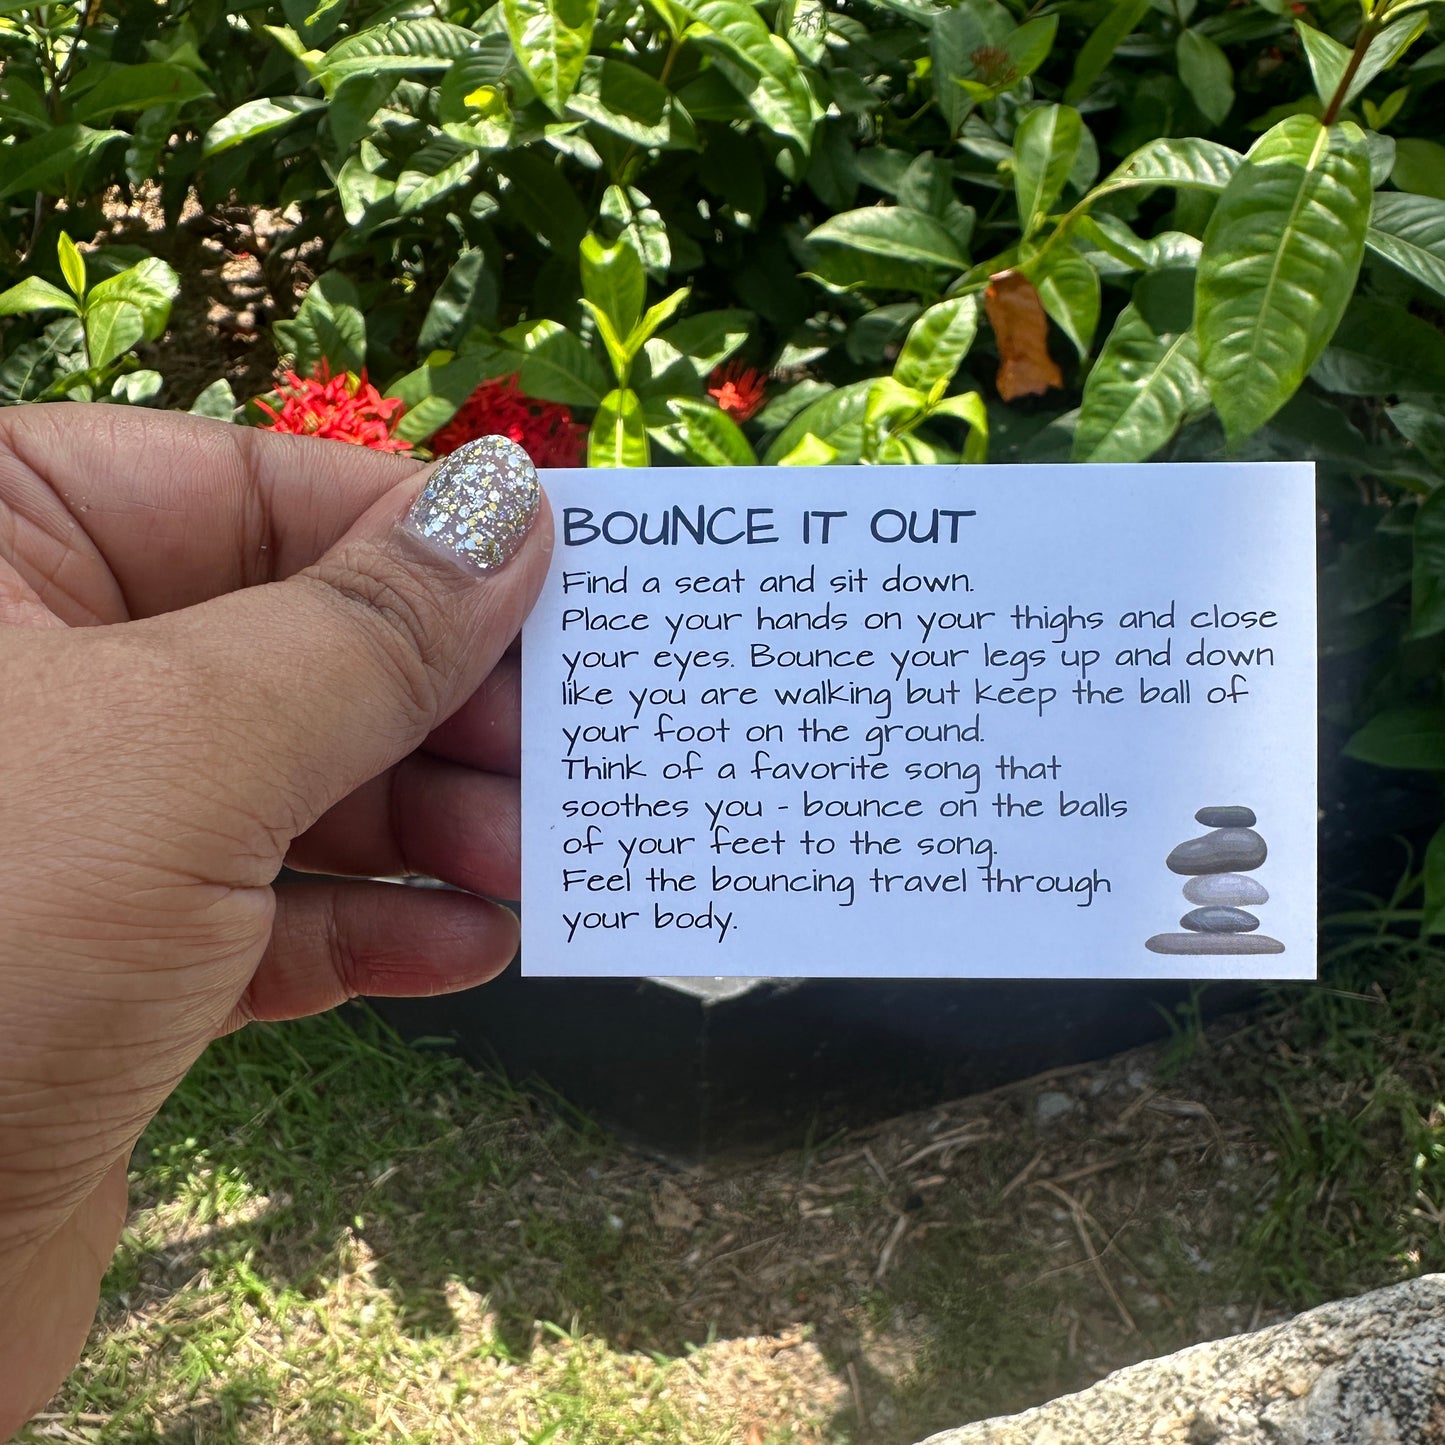 BOUNCE IT OUT
Find a seat and sit down.
Place your hands on your thighs and close
your eyes. Bounce your legs up and down
like you are walking but keep the ball of
your foot on the ground.
Think of a favorite song that
soothes you - bounce on the balls
of your feet to the song.
Feel the bouncing travel through
your body.